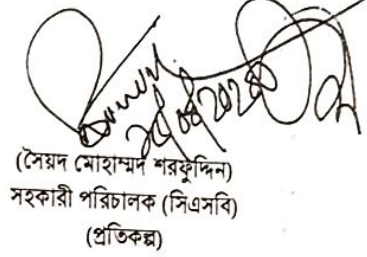 (সৈয়দ মোহাম্মদ শরফুদ্দিন)
সহকারী পরিচালক (সিএসবি)
(প্রতিকল্প)